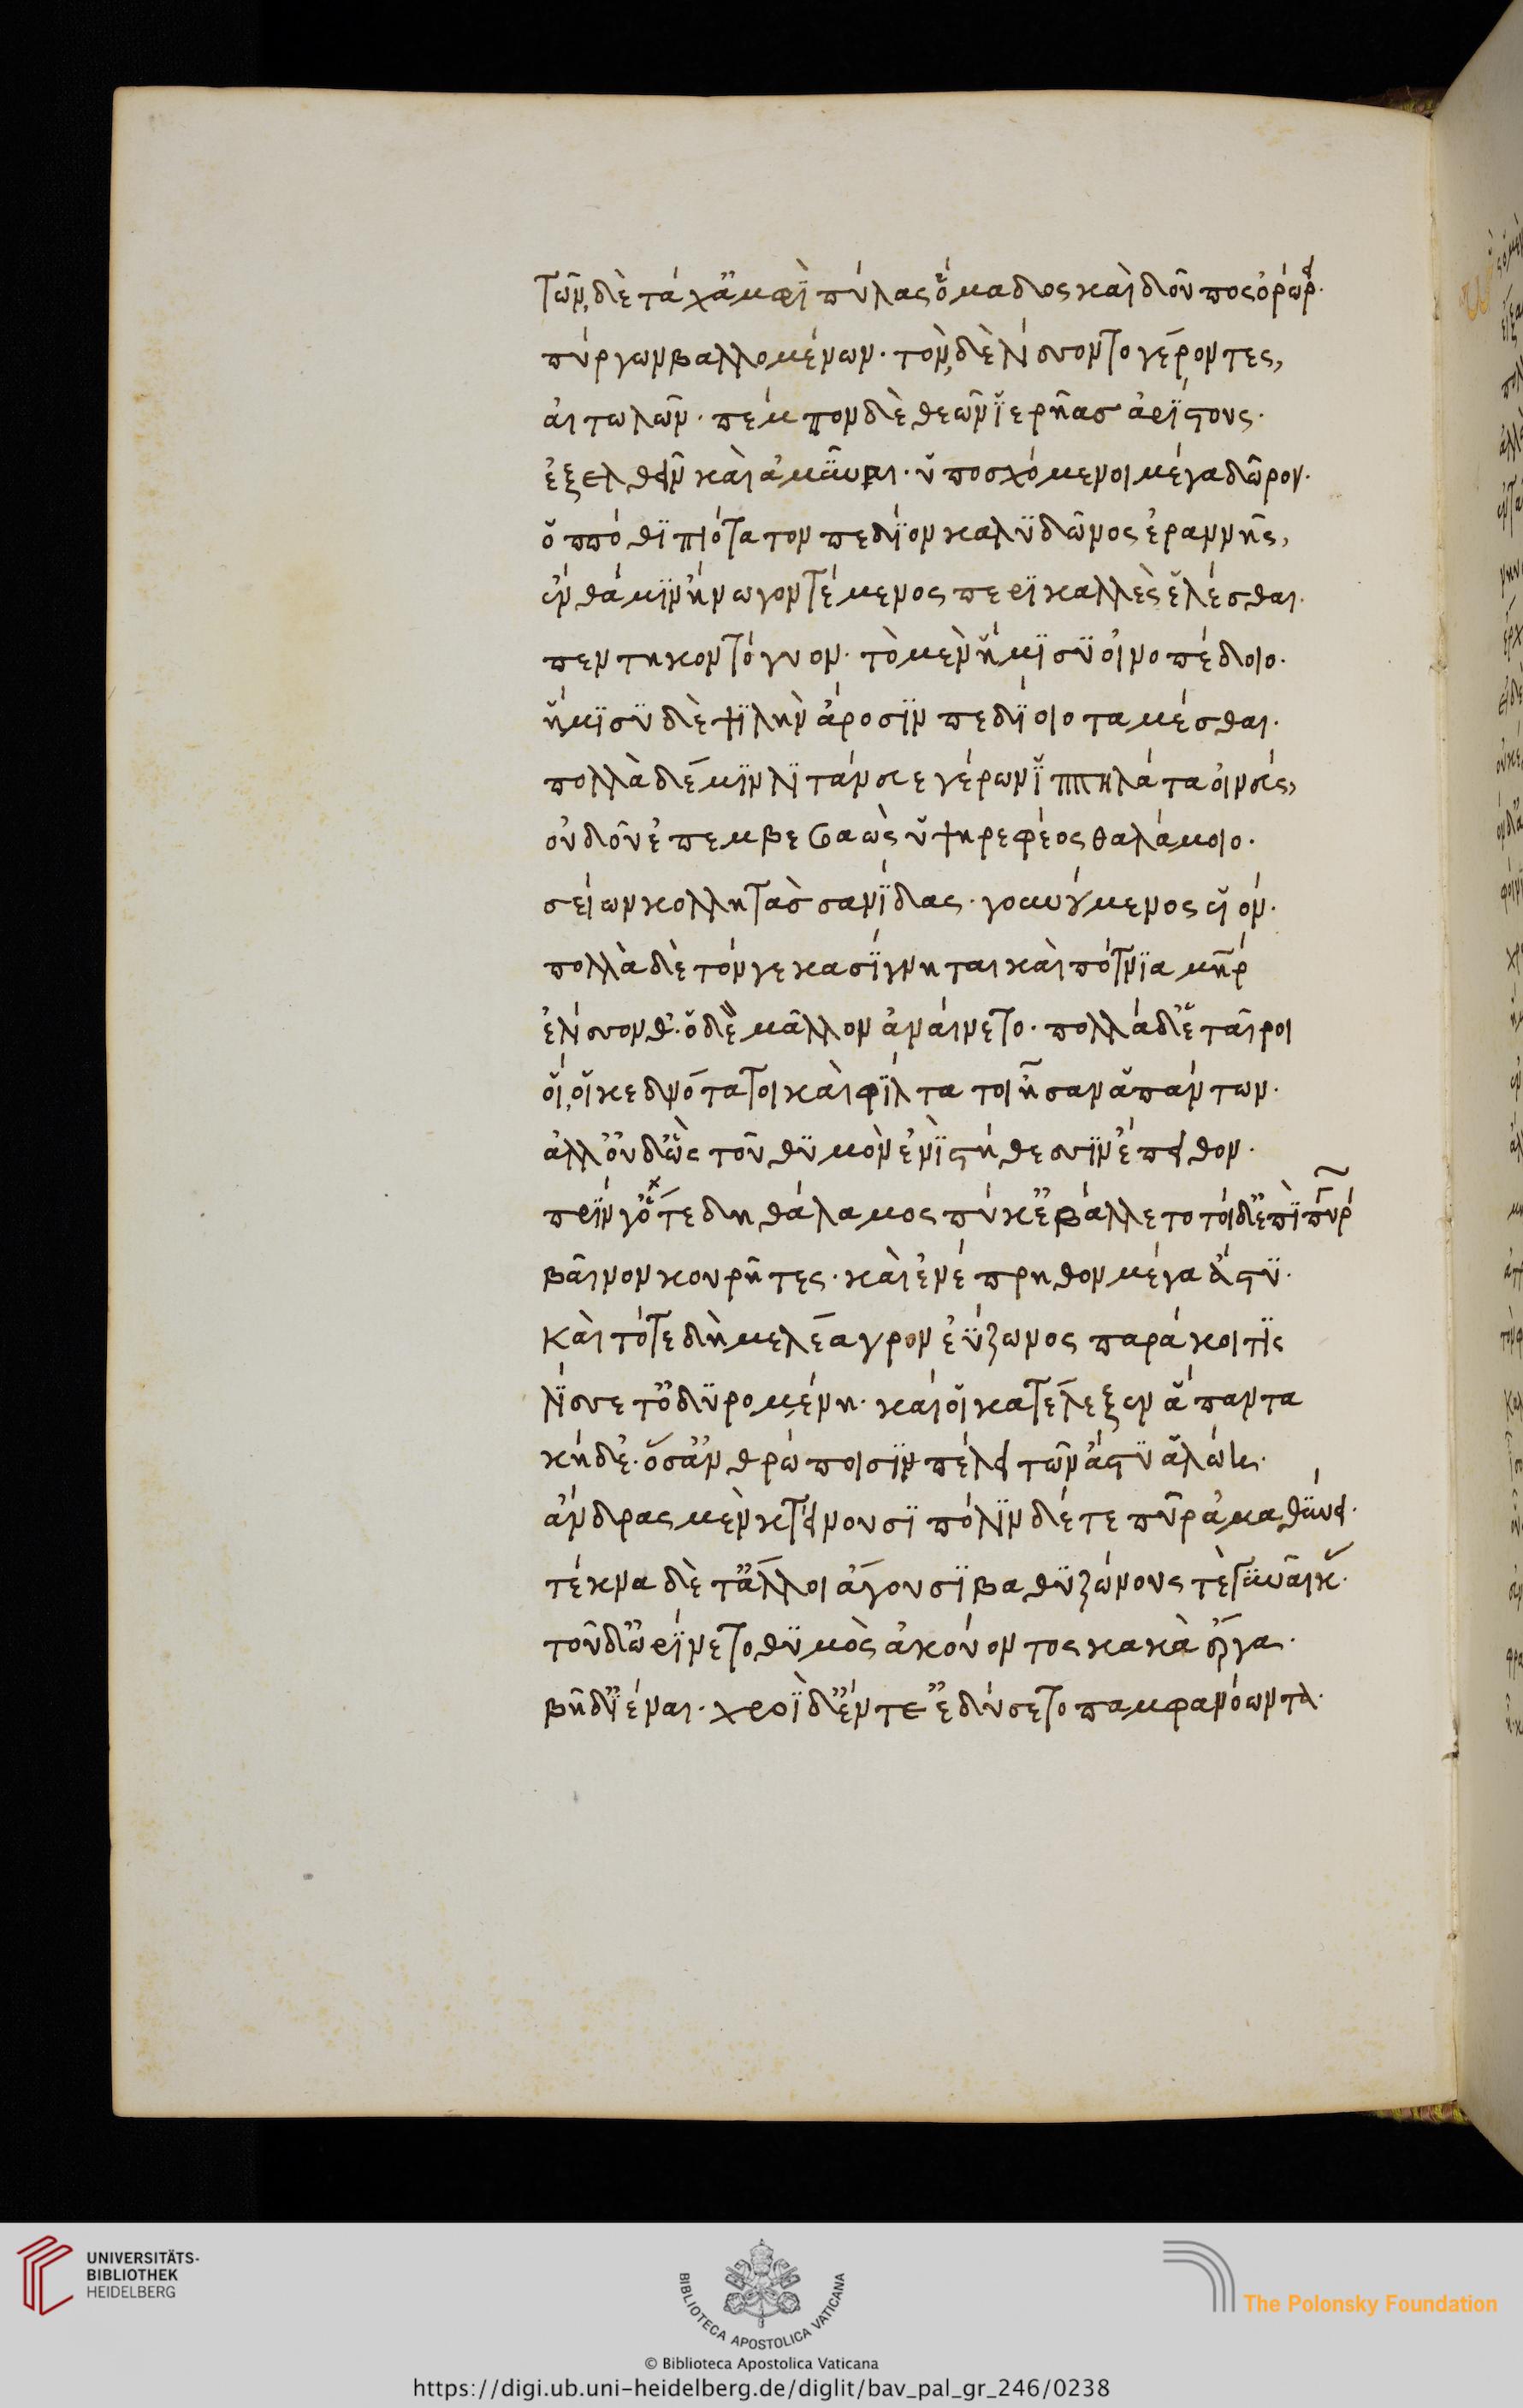 τῶν, δὲ τάχ' ἀμφὶ πύλας ὅμαδος καὶ δοῦπος ὀρώρει·
πύργων βαλλομένων· τὸν, δὲ λίσσοντο γέροντες,
αἰτωλῶν· πέμπον δὲ θεῶν ἱερῆας ἀρίστους·
ἐξελθεῖν καὶ ἀμῦναι· ὑποσχόμενοι μέγα δῶρον·
ὁππόθι πιότατον πεδίον καλυδῶνος ἐραννῆς,
ἔνθά μιν ἤνωγον τέμενος περικαλλὲς ἑλέσθαι·
πεντηκοντόγυον· τὸ μὲν ἥμισυ οἰνοπέδοιο·
ἥμισυ δὲ ψιλὴν ἄροσιν πεδίοιο ταμέσθαι·
πολλὰ δέ μιν λιτάνευε γέρων ἱππηλάτα οἰνεύς,
οὐδοῦ ἐπεμβεβαὼς ὑψηρεφέος θαλάμοιο·
σείων κολλητὰς σανίδας· γουνούμενος υἱόν·
πολλὰ δὲ τόν γε κασίγνηται καὶ πότνια μήτηρ
ἐλίσσονθ'· ὁ δὲ μᾶλλον ἀναίνετο· πολλά δ' ἑταῖροι
οἵ, οἱ κεδνότατοι καὶ φίλτατοι ἦσαν ἁπάντων·
ἀλλ' οὐδ' ὣς τοῦ θυμὸν ἐνὶ στήθεσσιν ἔπειθον·
πρίν γ' ὅτε δη θάλαμος πύκ' ἐβάλλετο τοὶ δ' ἐπὶ πύργων
βαῖνον κουρῆτες· καὶ ἐνέπρηθον μέγα ἄστυ·
καὶ τότε δὴ μελέαγρον ἐύζωνος παράκοιτις
λίσσετ' ὀδυρομένη· καί οἱ κατέλεξεν ἅπαντα
κήδε'· ὅσ' ἀνθρώποισιν πέλει τῶν ἄστυ ἁλώῃ·
ἄνδρας μὲν κτείνουσι πόλιν δέ τε πῦρ ἀμαθύνει·
τέκνα δέ τ' ἄλλοι ἄγουσι βαθυζώνους τὲ γυναῖκας·
τοῦ δ' ὠρίνετο θυμὸς ἀκούοντος κακὰ ἔργα·
βῆ δ' ἰέναι· χροῒ δ' ἔντε' ἐδύσετο παμφανόωντα·
UNIVERSITÄTS-
BIBLIOTHEK
HEIDELBERG
BIBLIOTECA APOSTOLICA VATICANA
The Polonsky Foundation
© Biblioteca Apostolica Vaticana
https://digi.ub.uni-heidelberg.de/diglit/bav_pal_gr_246/0238